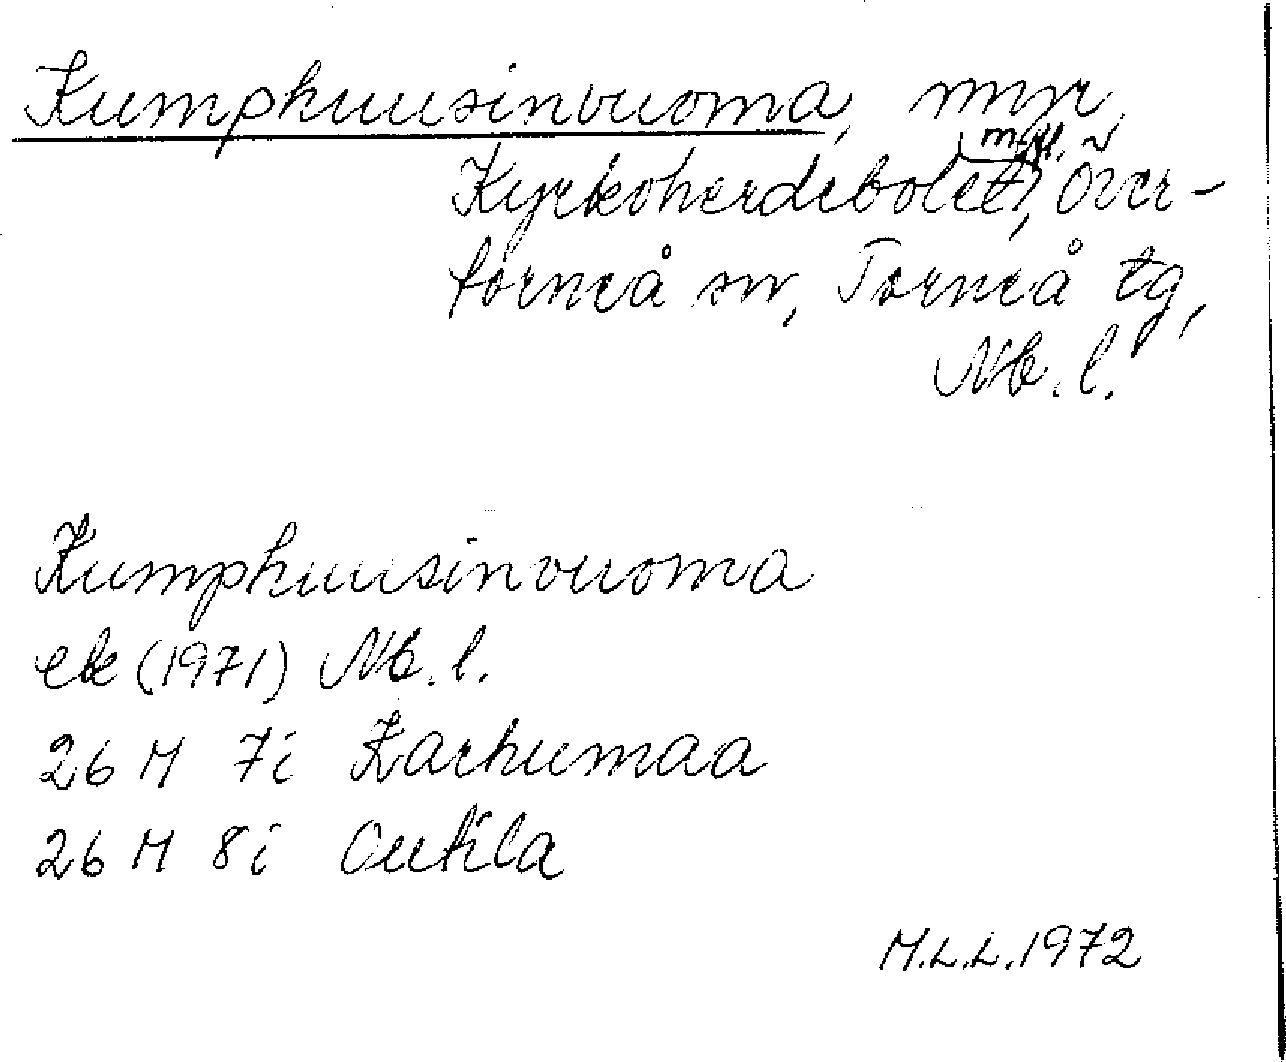 Kumphuusinvuoma, myr,
Kyrkoherdebolet, m.fl., Över-
torneå sn, Torneå tg,
Nb. l.
Kumphuusinvuoma
ek (1971) Nb. l.
26 M 7i Karhumaa
26 M 8i Outila
M.L.L. 1972